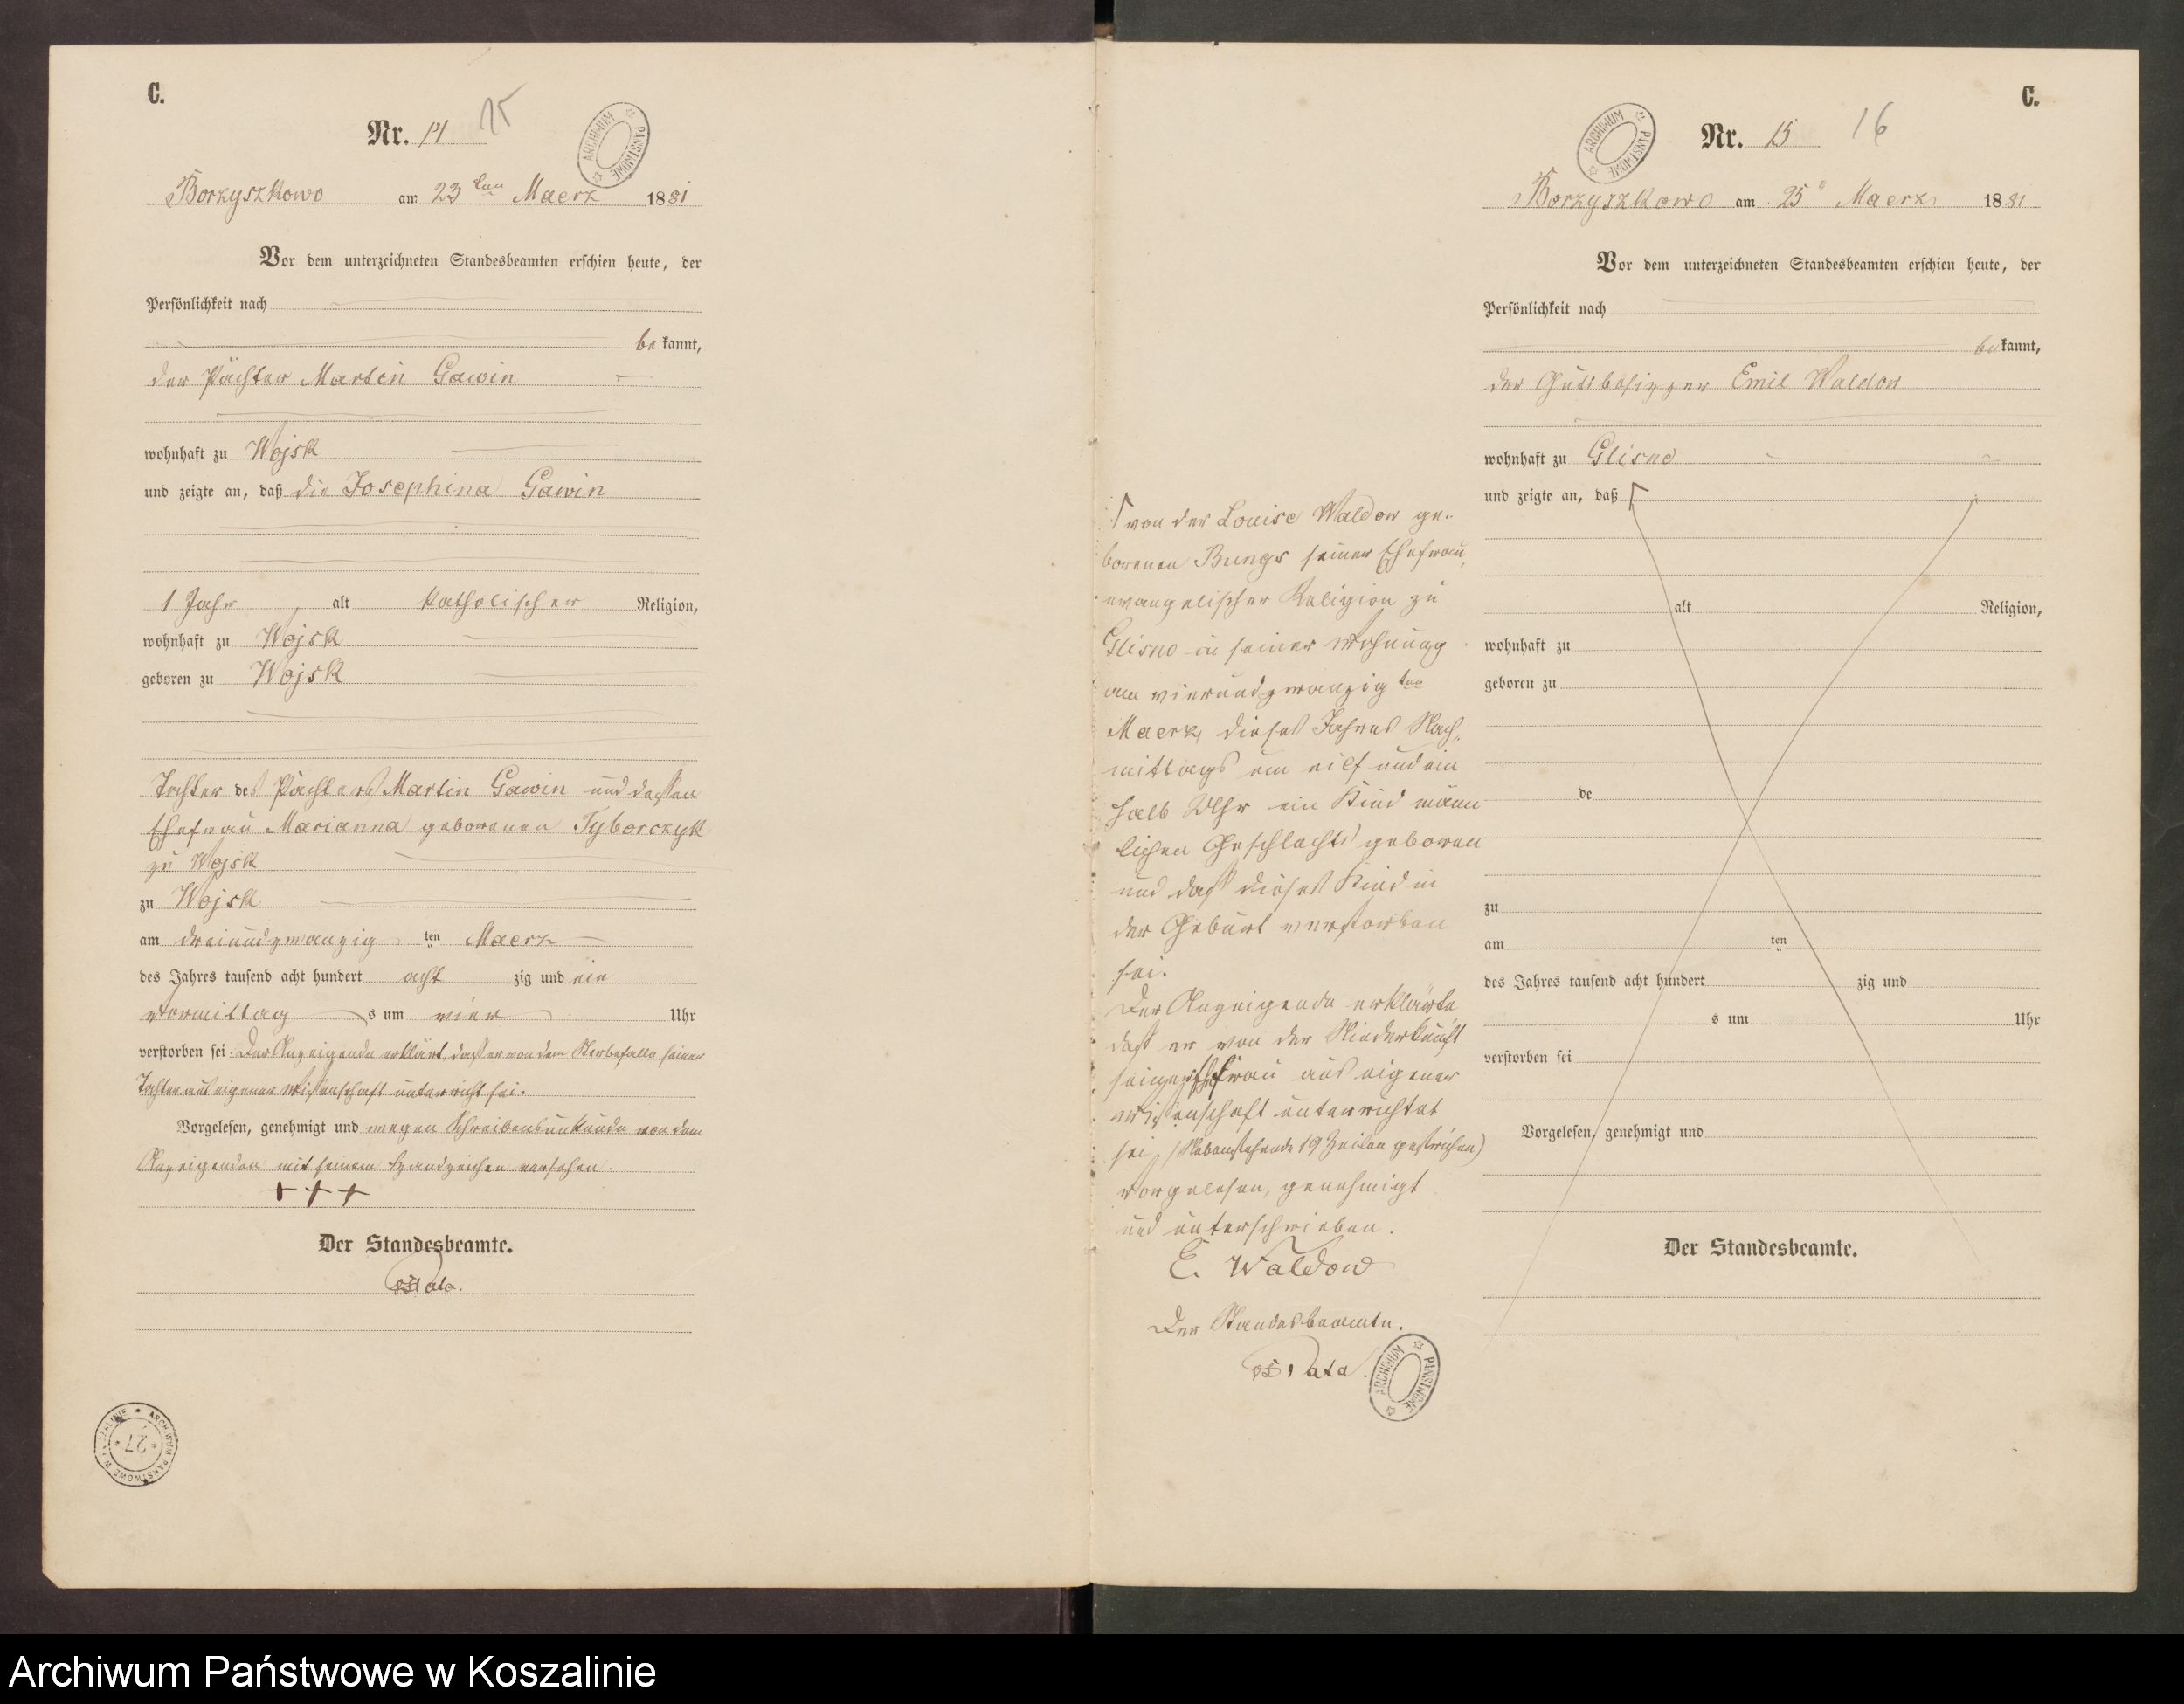 C.
Nr. 14 15
Borzyszkowo am 23ten Maerz 1881
Vor dem unterzeichneten Standesbeamten erschien heute, der
Persönlichkeit nach
bekannt,
der Pächter Martin Gawin
wohnhaft zu Wojsk
und zeigte an, daß die Josephina Gawin
1 Jahr, alt katholischer Religion,
wohnhaft zu Wojsk
geboren zu Wojsk
Tochter des Pächters Martin Gawin und dessen
Ehefrau Marianna geborenen Tyborczyk
zu Wojsk
zu Wojsk
am dreiundzwanzig ten Maerz
des Jahres tausend acht hundert acht zig und ein
vormittag s um vier Uhr
verstorben sei. Der Anzeigende erklärt, daß er von dem Sterbefalle seiner
Tochter aus eigener Wissenschaft unterricht sei.
Vorgelesen, genehmigt und wegen Schreibensunkunde von dem
Anzeigenden mit seinem Handzeichen versehen.
+++
Der Standesbeamte.
ARCHIWUM PAŃSTWOWE
ARCHIWUM PAŃSTWOWE W KOSZALINIE
27
C.
Nr. 15 16
Borzyszkowo am 25" Maerz 1881
Vor dem unterzeichneten Standesbeamten erschien heute, der
Persönlichkeit nach
bekannt,
der Gutsbesitzer Emil Waldow
wohnhaft zu Glisno
und zeigte an, daß
alt Religion,
wohnhaft zu
geboren zu
de
zu
am ten
des Jahres tausend acht hundert zig und
s um Uhr
verstorben sei
Vorgelesen, genehmigt und
Der Standesbeamte.
von der Louise Waldow ge-
borenen Bungs seiner Ehefrau,
evangelischer Religion zu
Glisno in seiner Wohnung
am vierundzwanzig ten
Maerz dieses Jahres Nach-
mittags um eilf und ein
halb Uhr ein Kind männ
lichen Geschlechts geboren
und daß dieses Kind in
der Geburt verstorben
sei.
Der Anzeigende erklärte
daß er von der Niederkunft
seiner Ehefrau aus eigener
Wissenschaft unterrichtet
sei. (Nebenstehende 19 Zeilen gestrichen)
vorgelesen, genehmigt
und unterschrieben.
E. Waldow
Der Standesbeamte.
ARCHIWUM PAŃSTWOWE
ARCHIWUM PAŃSTWOWE
Archiwum Państwowe w Koszalinie